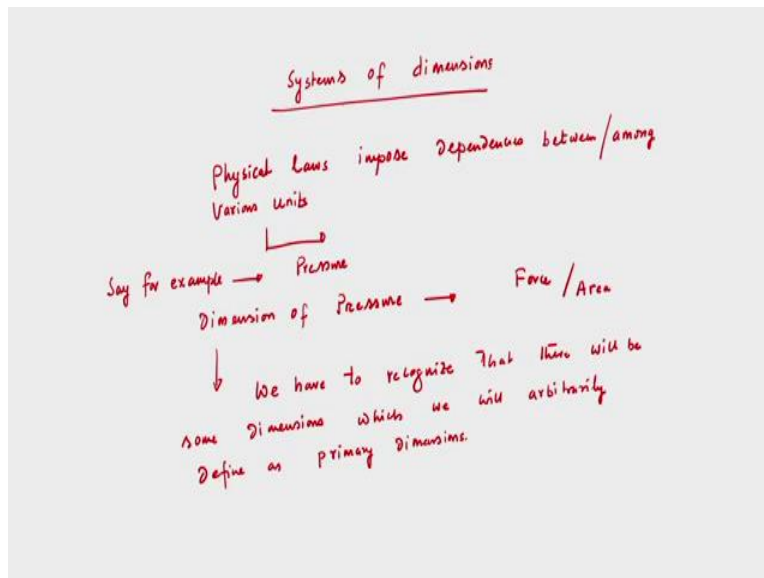 Systems of dimensions
Physical Laws impose Dependences between/among
Various units
Pressure
Say for example →
Dimension of Pressure → Force / Area
We have to recognize That there will be
some Dimensions which we will arbitrarily
Define as primary Dimensions.